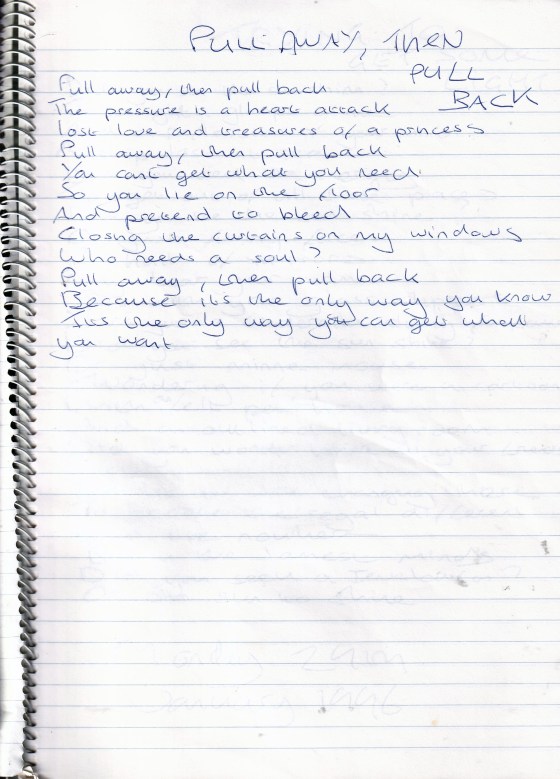 PULL AWAY, THEN
PULL
BACK
Pull away, then pull back
The pressure is a heart attack
Lost love and treasures of a princess
Pull away, then pull back
You cant get what you need.
So you lie on the floor
And pretend to bleed
Closing the curtains on my windows
Who needs a soul?
Pull away, then pull back
Because its the only way you know
Its the only way you can get what
you want